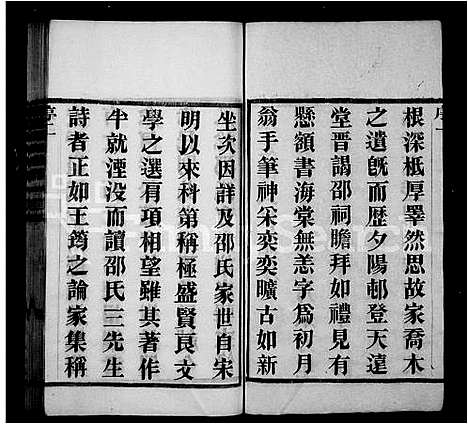 根深柢厚睪然思故家喬木
之遺既而歷夕陽邨登天遠
堂晉謁邵祠瞻拜如禮見有
懸額書海棠無恙字爲初月
翁手筆神采奕奕曠古如新
坐次因詳及邵氏家世自宋
明以來科第稱極盛賢良文
學之選肩項相望雖其著作
半就湮没而讀邵氏三先生
詩者正如王筠之論家集稱
序二